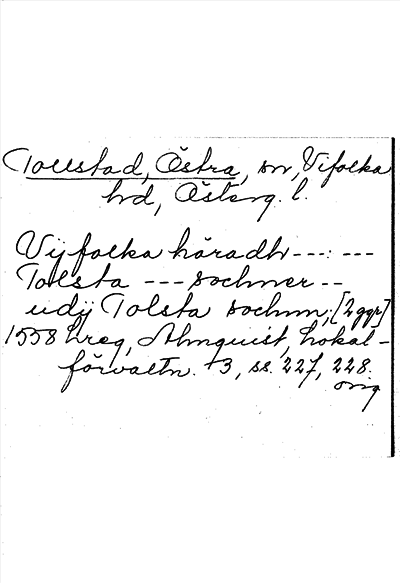 Tollstad, Östra, sn, Vifolka
hd, Österg. l.
Vij folka häradh ---: ---
Tolsta --- sochner --
udÿ Tolsta sochnn; [2 ggr]
1558 hreg, Almquist, Lokal-
förvaltn. 3, ss. 227, 228.
orig